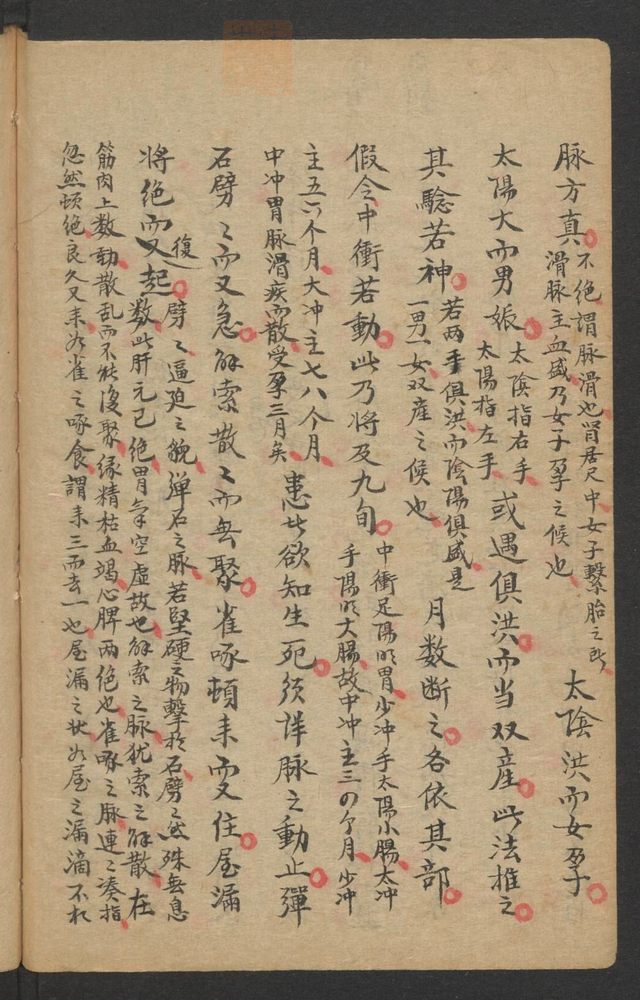 脉方真不絶謂脉滑也腎居尺中女子繫胎之所
滑脉主血盛乃女子孕之候也太陰洪而女孕
太陽大而男娠太陰指右手
太陽指左手或遇俱洪而当双産此法推之
其驗若神若両手俱洪而陰陽俱盛是
一男一女双産之候也月数断之各依其部
假令中衝若動此乃将及九旬中衝足陽明胃少冲手太陽小腸太冲
手陽明大腸故中冲主三四个月少冲
主五六个月大冲主七八个月
中冲胃脉滑疾而散受孕三月矣患此欲知生死須詳脉之動止彈
石劈〻而又急解索散〻而無聚雀啄頓来而又住屋漏
将絶而又復起劈〻逼迫之貌弾石之脉若堅硬之物擊於石劈〻然殊無息
数此肝元已絶胃氣空虚故也解索之脉犹索之解散在
筋肉上数動散乱而不能復聚縁精枯血竭心脾両絶也雀啄之脉連〻湊指
忽然頓絶良久又来如雀之啄食謂来三而去一也屋漏之状如屋之漏滴不相